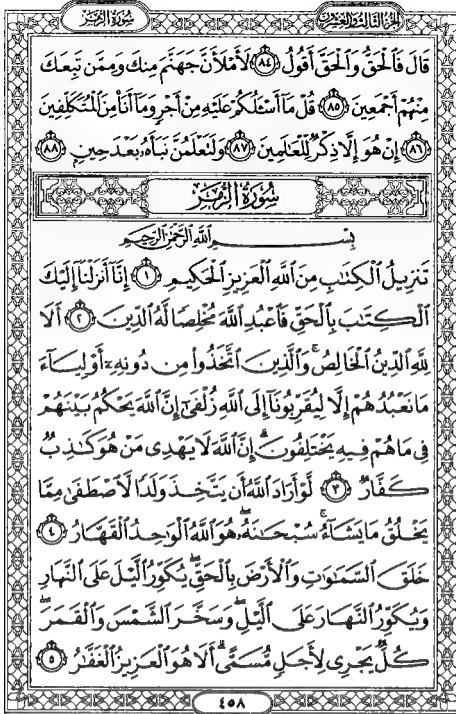 سُورَةُ الزُّمَرِ
الجُزءُ الثَّالِثُ وَالعِشْرُونَ
قَالَ فَٱلْحَقُّ وَٱلْحَقَّ أَقُولُ ۝٨٤ لَأَمْلَأَنَّ جَهَنَّمَ مِنكَ وَمِمَّن تَبِعَكَ
مِنْهُمْ أَجْمَعِينَ ۝٨٥ قُلْ مَآ أَسْـَٔلُكُمْ عَلَيْهِ مِنْ أَجْرٍ وَمَآ أَنَا۠ مِنَ ٱلْمُتَكَلِّفِينَ
۝٨٦ إِنْ هُوَ إِلَّا ذِكْرٌ لِّلْعَٰلَمِينَ ۝٨٧ وَلَتَعْلَمُنَّ نَبَأَهُۥ بَعْدَ حِينٍۭ ۝٨٨
سُورَةُ الزُّمَرِ
بِسْمِ ٱللَّهِ ٱلرَّحْمَٰنِ ٱلرَّحِيمِ
تَنزِيلُ ٱلْكِتَٰبِ مِنَ ٱللَّهِ ٱلْعَزِيزِ ٱلْحَكِيمِ ۝١ إِنَّآ أَنزَلْنَآ إِلَيْكَ
ٱلْكِتَٰبَ بِٱلْحَقِّ فَٱعْبُدِ ٱللَّهَ مُخْلِصًا لَّهُ ٱلدِّينَ ۝٢ أَلَا
لِلَّهِ ٱلدِّينُ ٱلْخَالِصُ ۚ وَٱلَّذِينَ ٱتَّخَذُوا۟ مِن دُونِهِۦٓ أَوْلِيَآءَ
مَا نَعْبُدُهُمْ إِلَّا لِيُقَرِّبُونَآ إِلَى ٱللَّهِ زُلْفَىٰٓ إِنَّ ٱللَّهَ يَحْكُمُ بَيْنَهُمْ
فِى مَا هُمْ فِيهِ يَخْتَلِفُونَ ۗ إِنَّ ٱللَّهَ لَا يَهْدِى مَنْ هُوَ كَٰذِبٌ
كَفَّارٌ ۝٣ لَّوْ أَرَادَ ٱللَّهُ أَن يَتَّخِذَ وَلَدًا لَّٱصْطَفَىٰ مِمَّا
يَخْلُقُ مَا يَشَآءُ ۚ سُبْحَٰنَهُۥ ۖ هُوَ ٱللَّهُ ٱلْوَٰحِدُ ٱلْقَهَّارُ ۝٤
خَلَقَ ٱلسَّمَٰوَٰتِ وَٱلْأَرْضَ بِٱلْحَقِّ ۖ يُكَوِّرُ ٱلَّيْلَ عَلَى ٱلنَّهَارِ
وَيُكَوِّرُ ٱلنَّهَارَ عَلَى ٱلَّيْلِ ۖ وَسَخَّرَ ٱلشَّمْسَ وَٱلْقَمَرَ ۖ
كُلٌّ يَجْرِى لِأَجَلٍ مُّسَمًّى ۗ أَلَا هُوَ ٱلْعَزِيزُ ٱلْغَفَّٰرُ ۝٥
٤٥٨